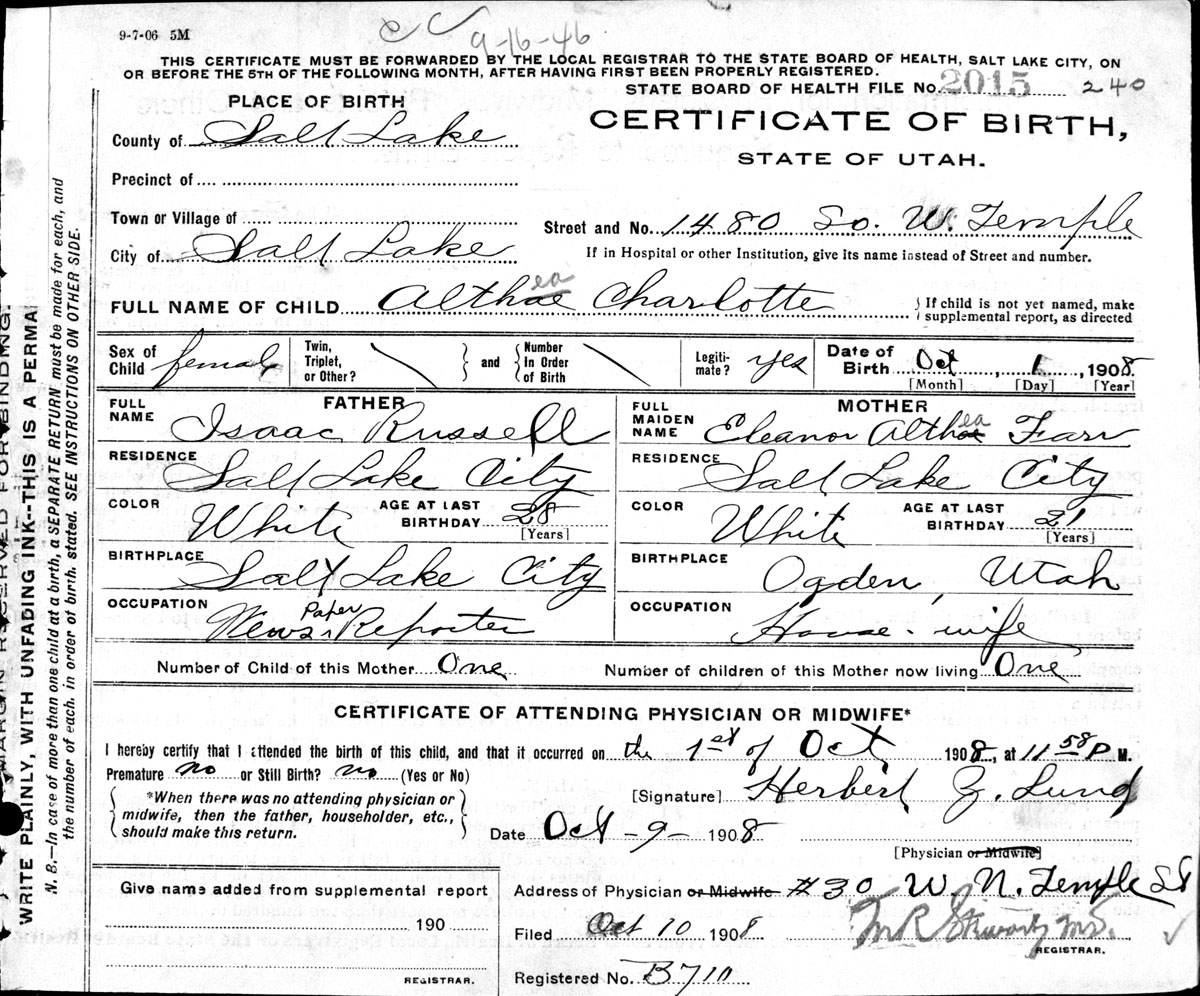 9-7-06 5M
9-16-46
THIS CERTIFICATE MUST BE FORWARDED BY THE LOCAL REGISTRAR TO THE STATE BOARD OF HEALTH, SALT LAKE CITY, ON
OR BEFORE THE 5TH OF THE FOLLOWING MONTH, AFTER HAVING FIRST BEEN PROPERLY REGISTERED.
STATE BOARD OF HEALTH FILE NO. 2015 240
PLACE OF BIRTH
CERTIFICATE OF BIRTH,
STATE OF UTAH.
County of Salt Lake
Precinct of
Town or Village of
Street and No. 1480 So. W. Temple
City of Salt Lake
If in Hospital or other Institution, give its name instead of Street and number.
FULL NAME OF CHILD Althea Charlotte
{ If child is not yet named, make
supplemental report, as directed
Sex of Child female
Twin, Triplet, or Other?
and
Number in Order of Birth
Legitimate? yes
Date of Birth Oct, 1, 1908
[Month] [Day] [Year]
FATHER
FULL NAME Isaac Russell
RESIDENCE Salt Lake City
COLOR White
AGE AT LAST BIRTHDAY 28
[Years]
BIRTHPLACE Salt Lake City
OCCUPATION News Paper Reporter
MOTHER
FULL MAIDEN NAME Eleanor Althea Farr
RESIDENCE Salt Lake City
COLOR White
AGE AT LAST BIRTHDAY 21
[Years]
BIRTHPLACE Ogden, Utah
OCCUPATION House-wife
Number of Child of this Mother One
Number of children of this Mother now living One
CERTIFICATE OF ATTENDING PHYSICIAN OR MIDWIFE*
I hereby certify that I attended the birth of this child, and that it occurred on the 1st of Oct 1908, at 11 58 P M.
Premature no or Still Birth? no (Yes or No)
*When there was no attending physician or
midwife, then the father, householder, etc.,
should make this return.
[Signature] Herbert Z. Lund
Date Oct - 9 - 1908
[Physician or Midwife]
Give name added from supplemental report
190
REGISTRAR.
Address of Physician or Midwife #30 W. N. Temple St
Filed Oct 10 1908
REGISTRAR.
Registered No. B710
WRITE PLAINLY, WITH UNFADING INK--THIS IS A PERMA
N. B.—In case of more than one child at a birth, a SEPARATE RETURN must be made for each, and
the number of each, in order of birth, stated. SEE INSTRUCTIONS ON OTHER SIDE.